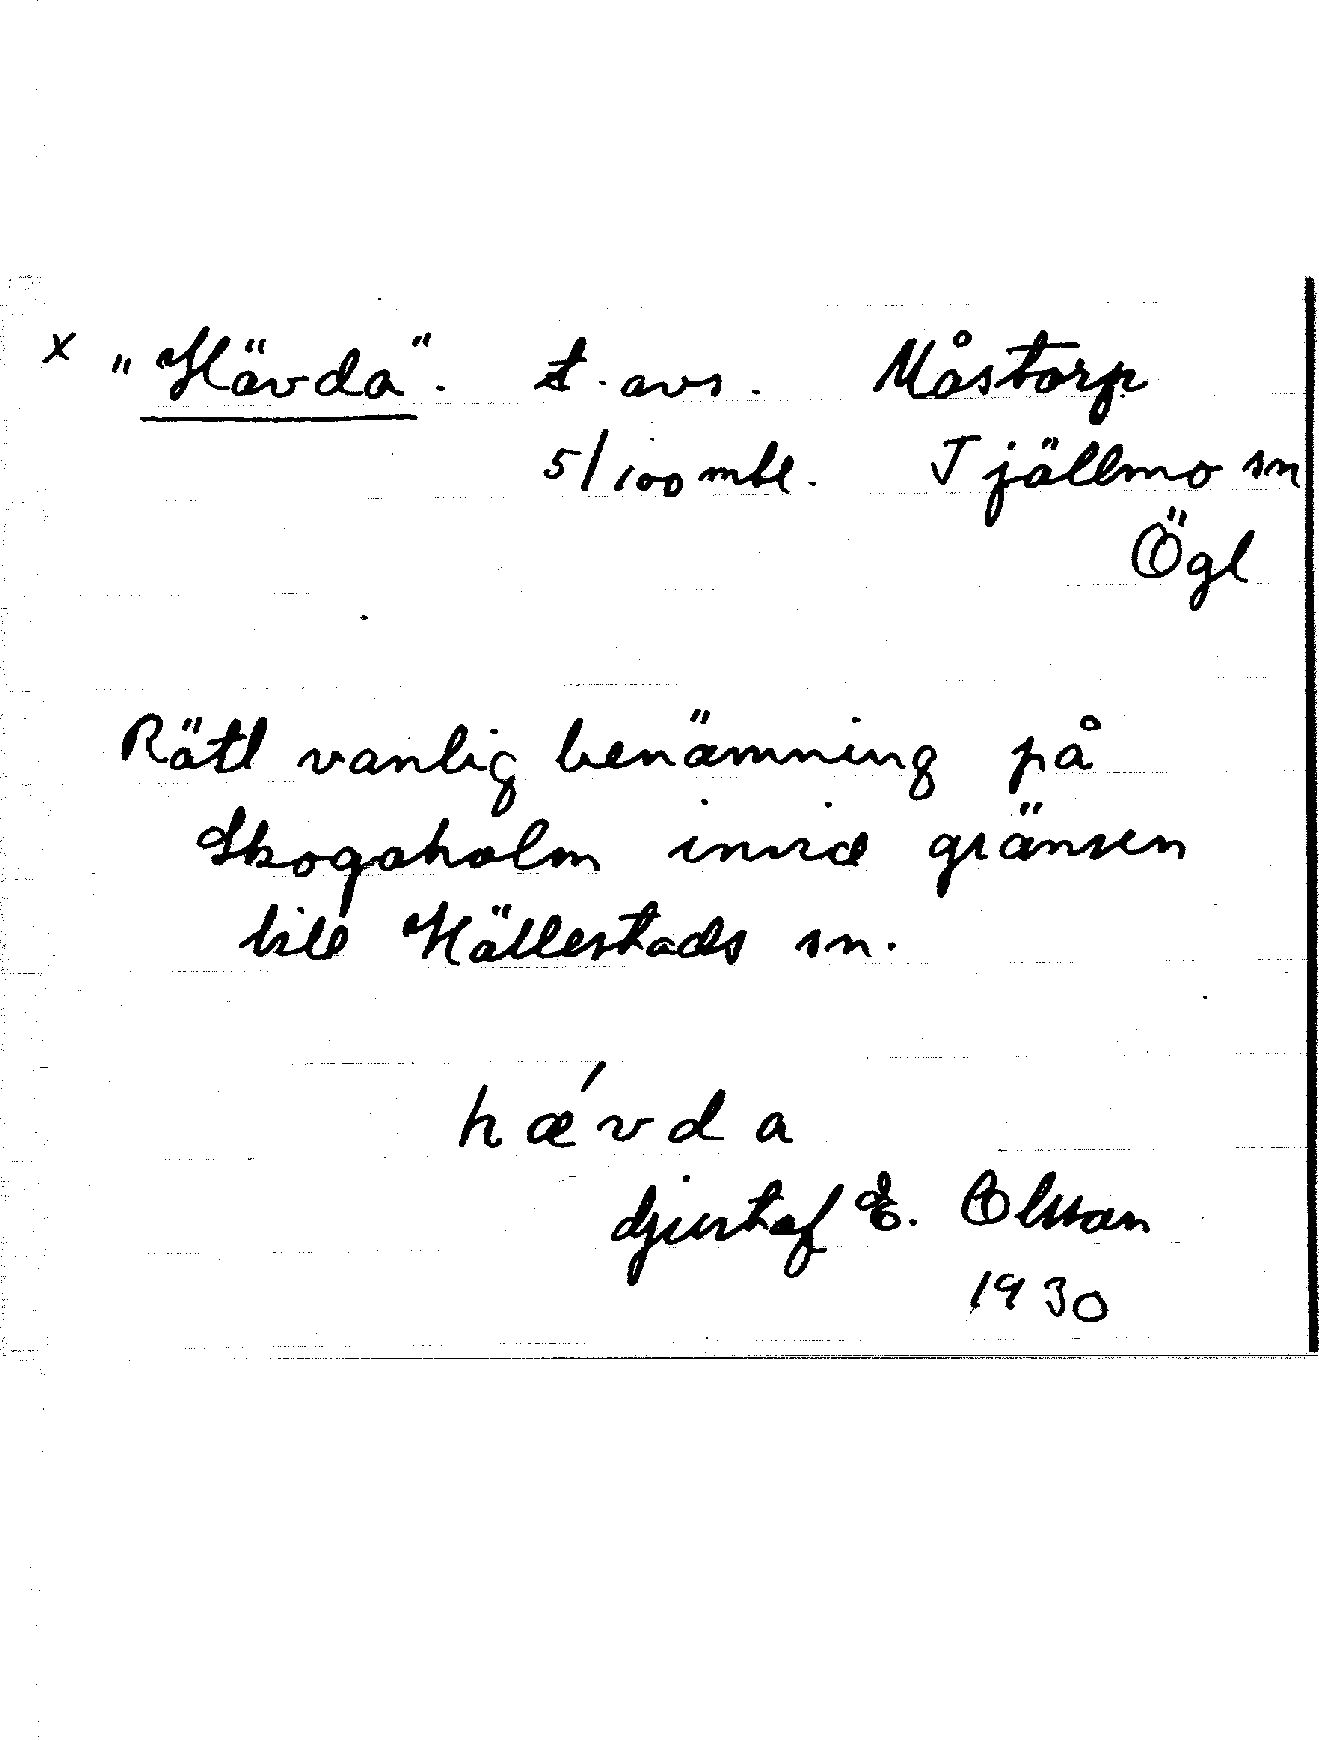 x "Hävda". t. avs. Måstorp
5/100 mtl. Tjällmo sn
Ögl
Rätt vanlig benämning på
Skogaholm invid gränsen
till Hällestads sn.
hǽvda
Gustaf E. Olsson
1930